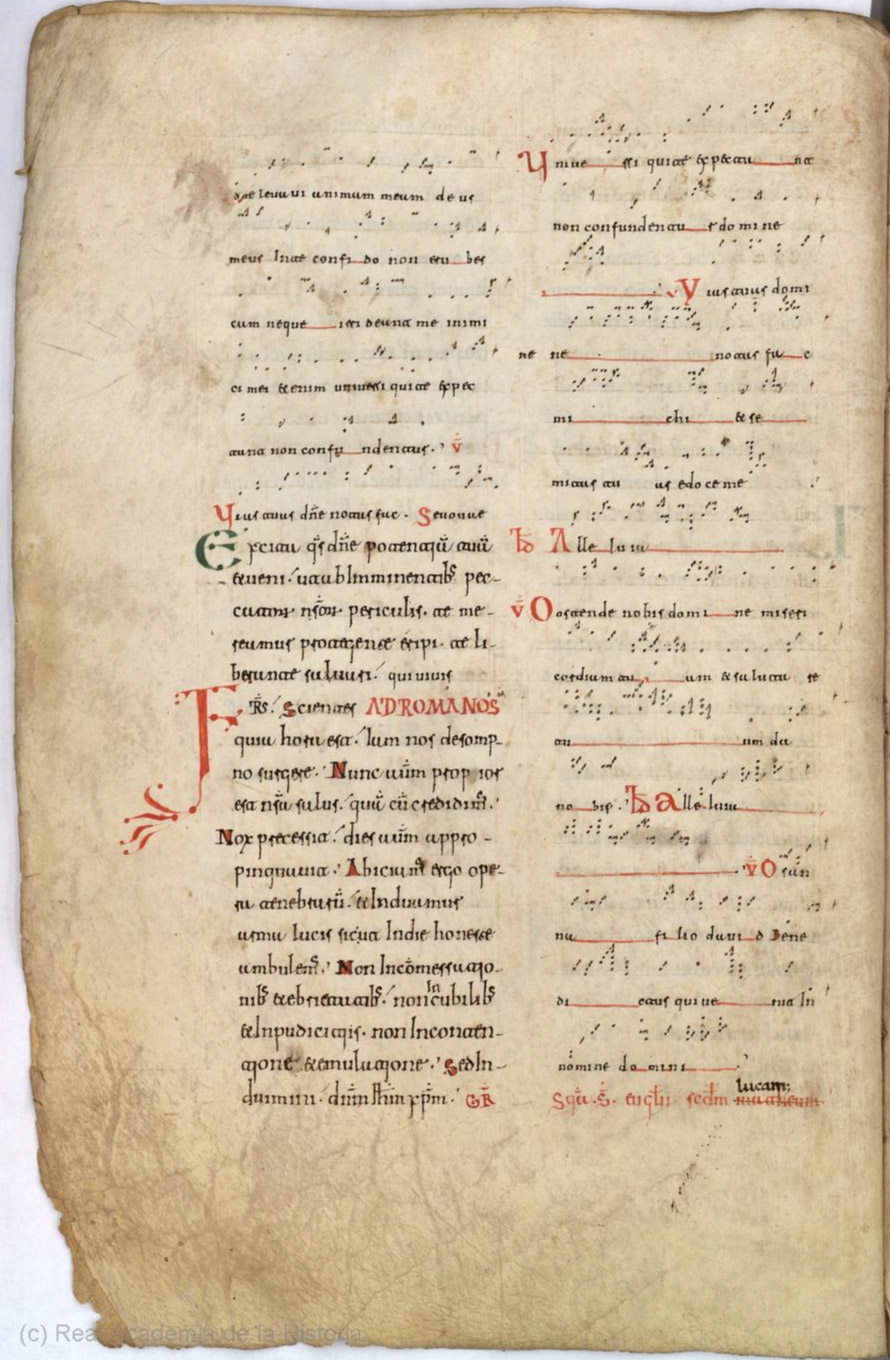 d te levavi animam meam deus
meus Inte confido non eru bes
cam neque irri deant me inimi
ci mei et enim universi qui te expec
tant non confundentur. V
Vias tuas dñe notas fac. Seuouae
Excita qs dñe potentiã tuã
et veni. ut ab Imminentibs pec-
catorum nrõrum periculis. te me-
reamur protegente eripi. te li-
berante salvari. qui vivis
FRS. Scientes AD ROMANOS
quia hora est. Iam nos desomp-
no surgere. Nunc autm propior
est nrã salus. quã cũ credidimus.
Nox precessit. dies autm appro-
pinquavit. Abiciamus ergo ope-
ra tenebrarũ. et Induamur
arma lucis sicut Indie honeste
ambulemus. Non Incõmessatio-
nibs et ebrietatibs. non In cubilibs
et Inpudicitiis. non Inconten-
tione et emulatione. Sed In-
duimini. dnm ihm xpm. GR
Vniverssi qui te expectant
non confundentur domine
Vias tuas domi
ne ne notas fac
mi chi et se
mitas tu as edoce me
Alle luia
V Oostende nobis domi ne miseri
cordiam tu am et salutare
tu um da
no bis. Alle luia
V Osan
na filio david Bene
di ctus qui venit In
nomine do mini
lucam;
Sqũ. S. euglii scdm matheum
(c) Real Academia de la Historia